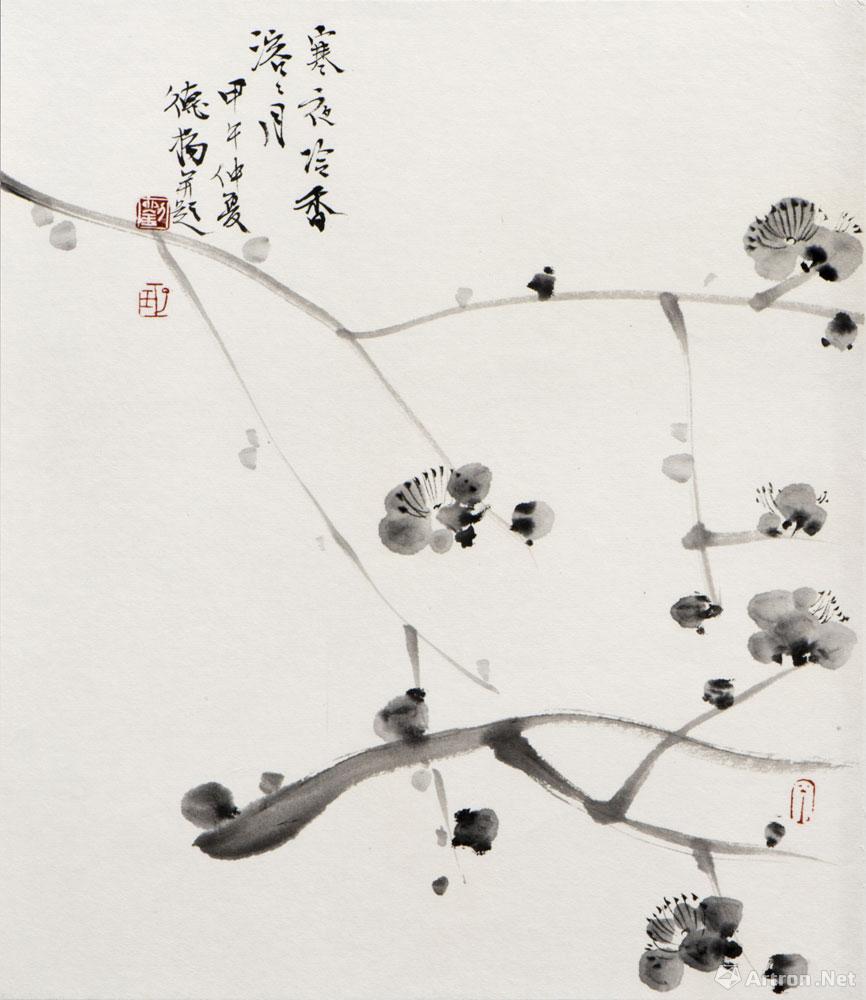 寒夜冷香
溶々月
甲午仲夏
德揚并題
劉
Artron.Net